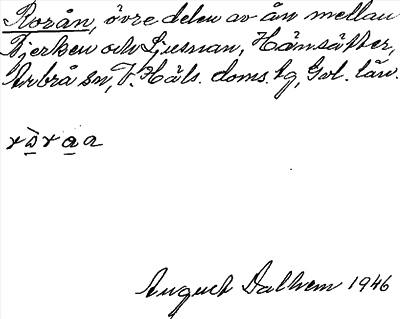 Rorån, övre delen av ån mellan
Tjerken och Ljusnan, Hämsätter,
Arbrå sn, V. Häls. doms. hg, Gvl. län.
August Dalhem 1946